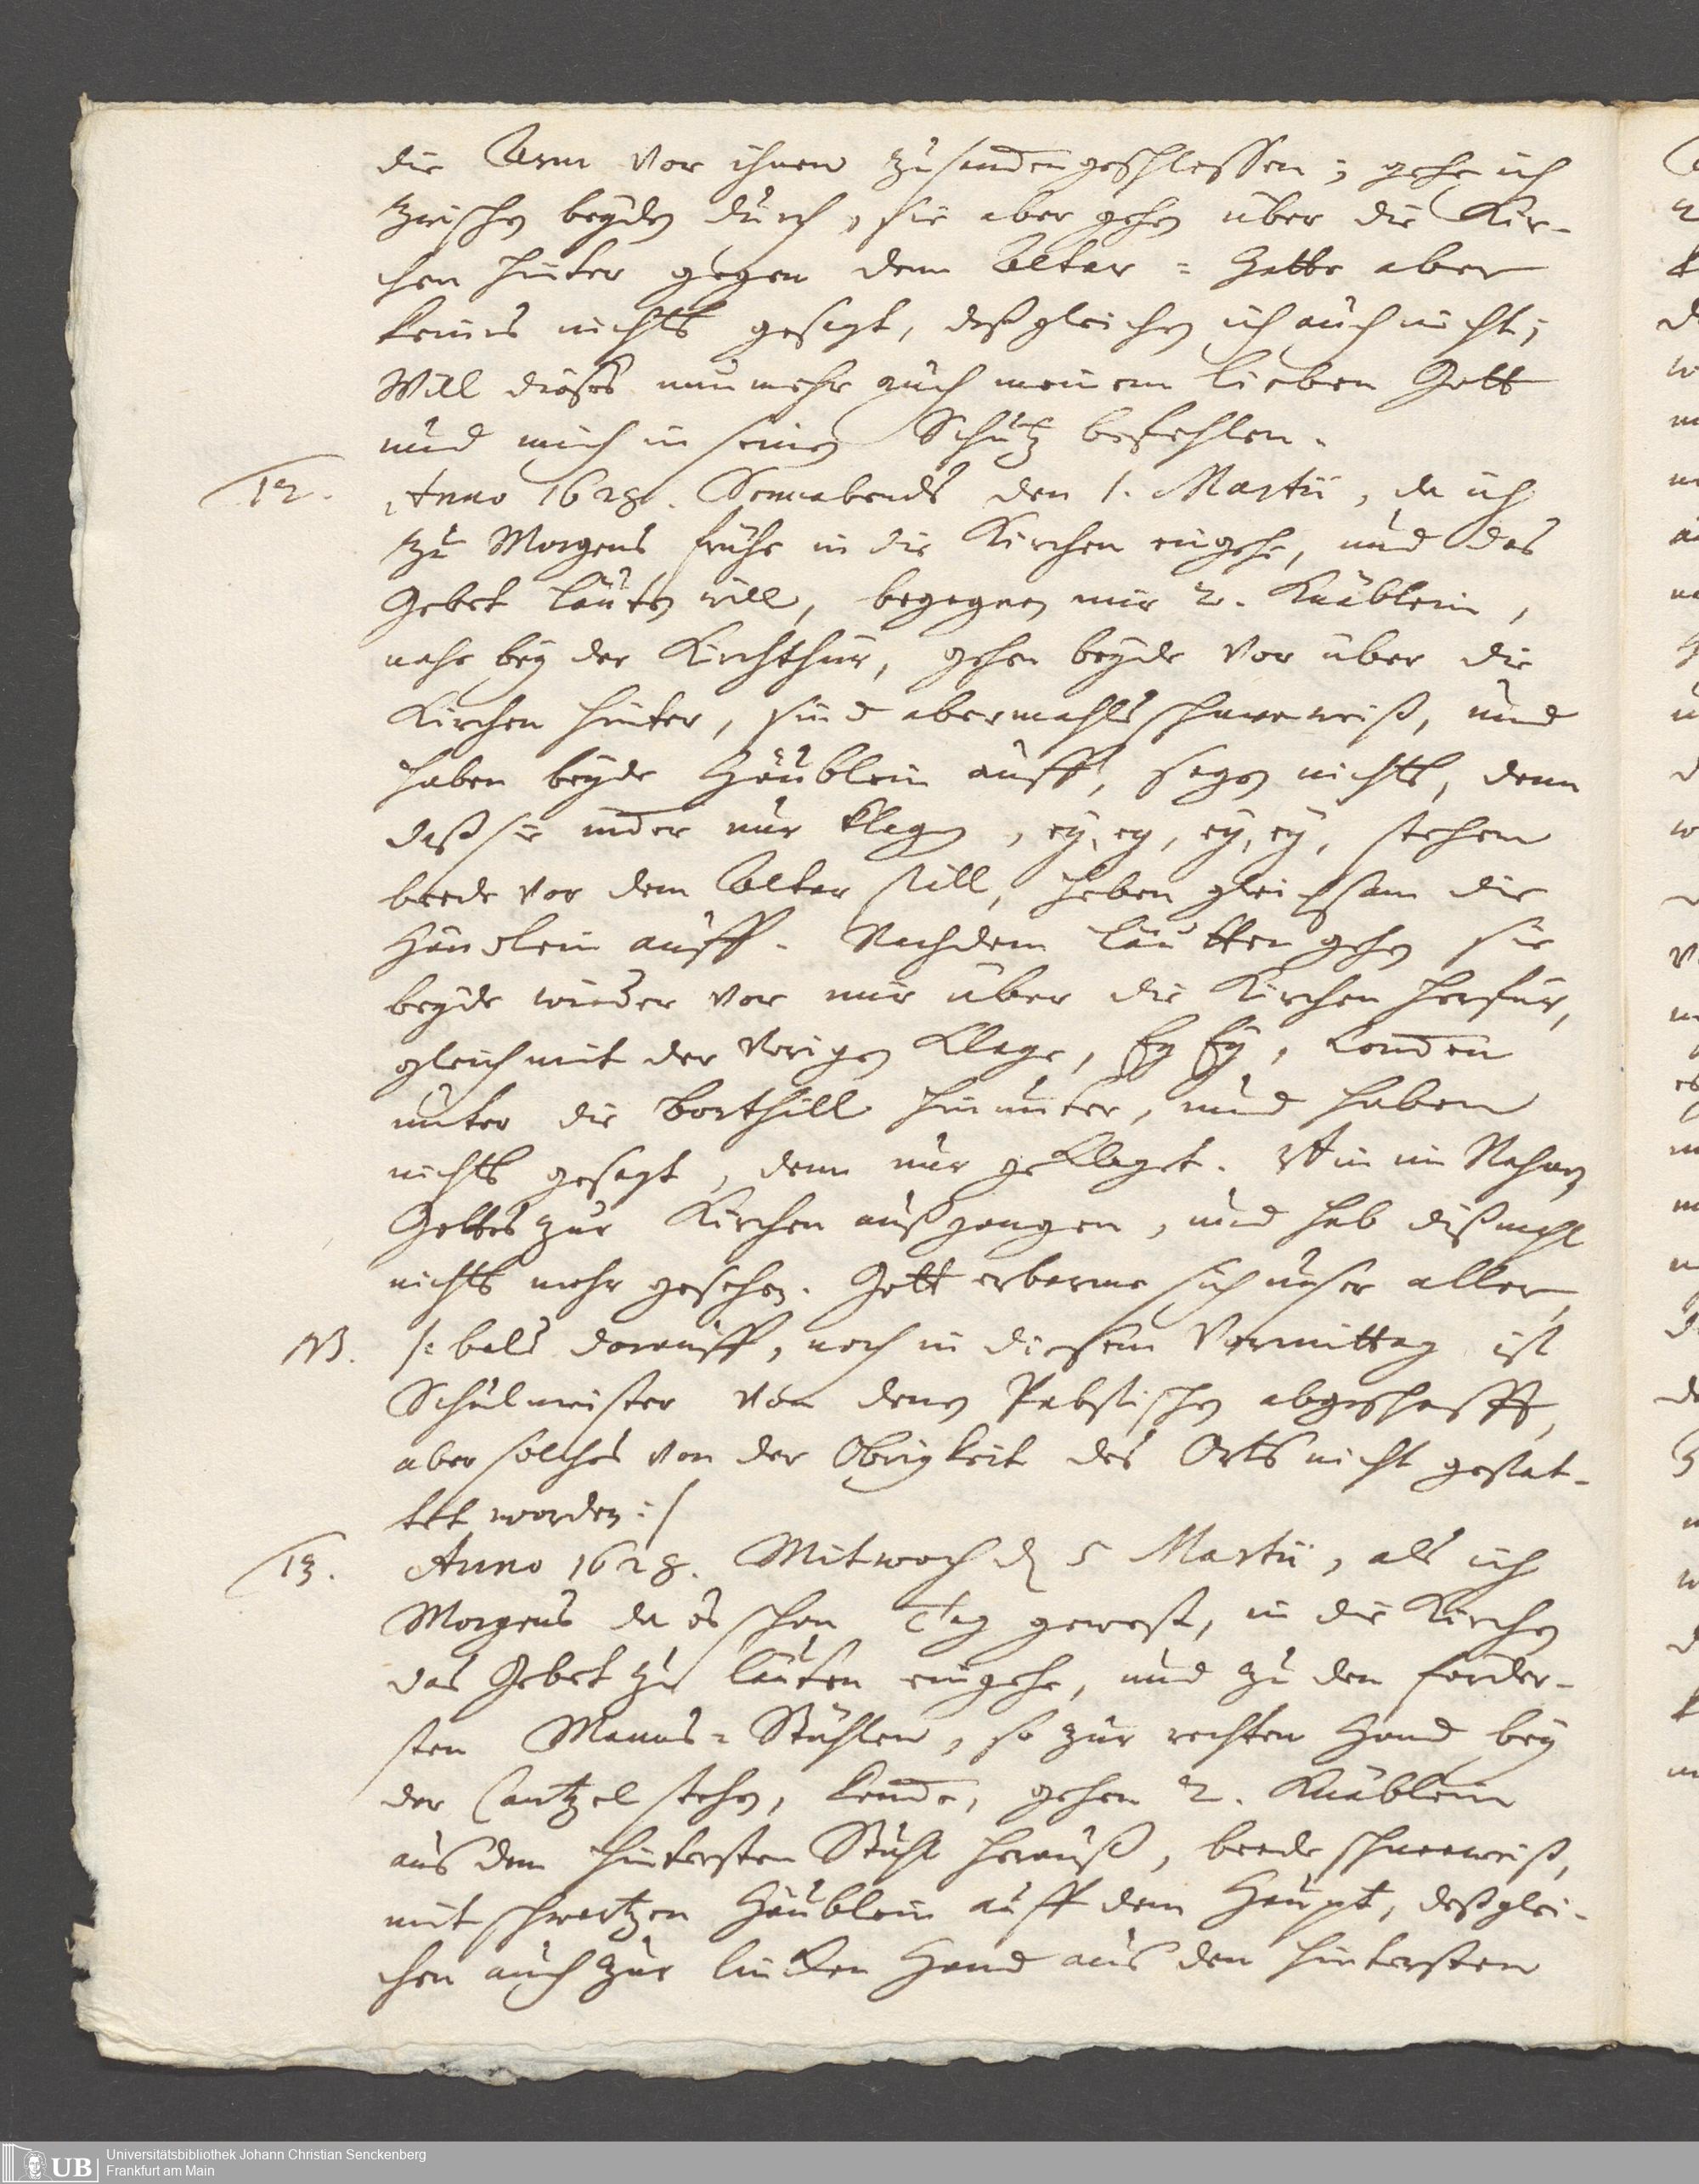 die Arm vor ihnen zusammengeschlossen; gehe ich
zwischen beyden durch, sie aber gehen über die Kir-
chen hinter gegen dem Altar = Hatte aber
keines nichts gesagt, deßgleichen ich auch nicht;
Will dieses nunmehr auch meinem lieben Gott
und mich in seinen Schutz befehlen.
12. Anno 1628. Sonnabends den 1. Martii, da ich
zu Morgens frühe in die Kirchen eingehe, und das
Gebet läuten will, begegnen mir 2. Knäblein,
nahe bey der Kirchthür, gehen beyde vor über die
Kirchen hinter, sind abermahls schneeweiß, und
haben beyde Häublein auff, sagen nichts, denn
daß sie nur klagen, ey, ey, ey, ey, stehen
beede vor dem Altar still, heben gleichsam die
Händlein auff. Nachdem läutten gehen sie
beyde wieder vor mir über die Kirchen herfür,
gleich mit der vorigen Klage, Ey Ey,
unter die hinunter, und haben
nichts gesagt, denn nur geklaget. Bin im Nahmen
Gottes zur Kirchen außgangen, und hab dißmahl
nichts mehr gesehen. Gott erbarme sich unser aller,
NB. /: bald darauff, noch in diesem Vormittag ist
Schulmeister von denen Pabstischen abgeschafft,
aber solches von der Obrigkeit des Orts nicht gestat-
tet worden :/
13. Anno 1628. Mitwoch den 5 Martii, als ich
Morgens da es schon Tag gewest, in die Kirchen
das Gebet zu läuten eingehe, und zu den forder-
sten Manns=Stühlen, so zur rechten Hand bey
der Cantzel stehen, komme, gehen 2. Knäblein
aus dem hintersten Stuhl herauß, beede schneeweiß,
mit schwartzen Häublein auff dem Haupt, deßglei-
chen auch zur lincken Hand aus den hintersten
Universitätsbibliothek Johann Christian Senckenberg
Frankfurt am Main
UB